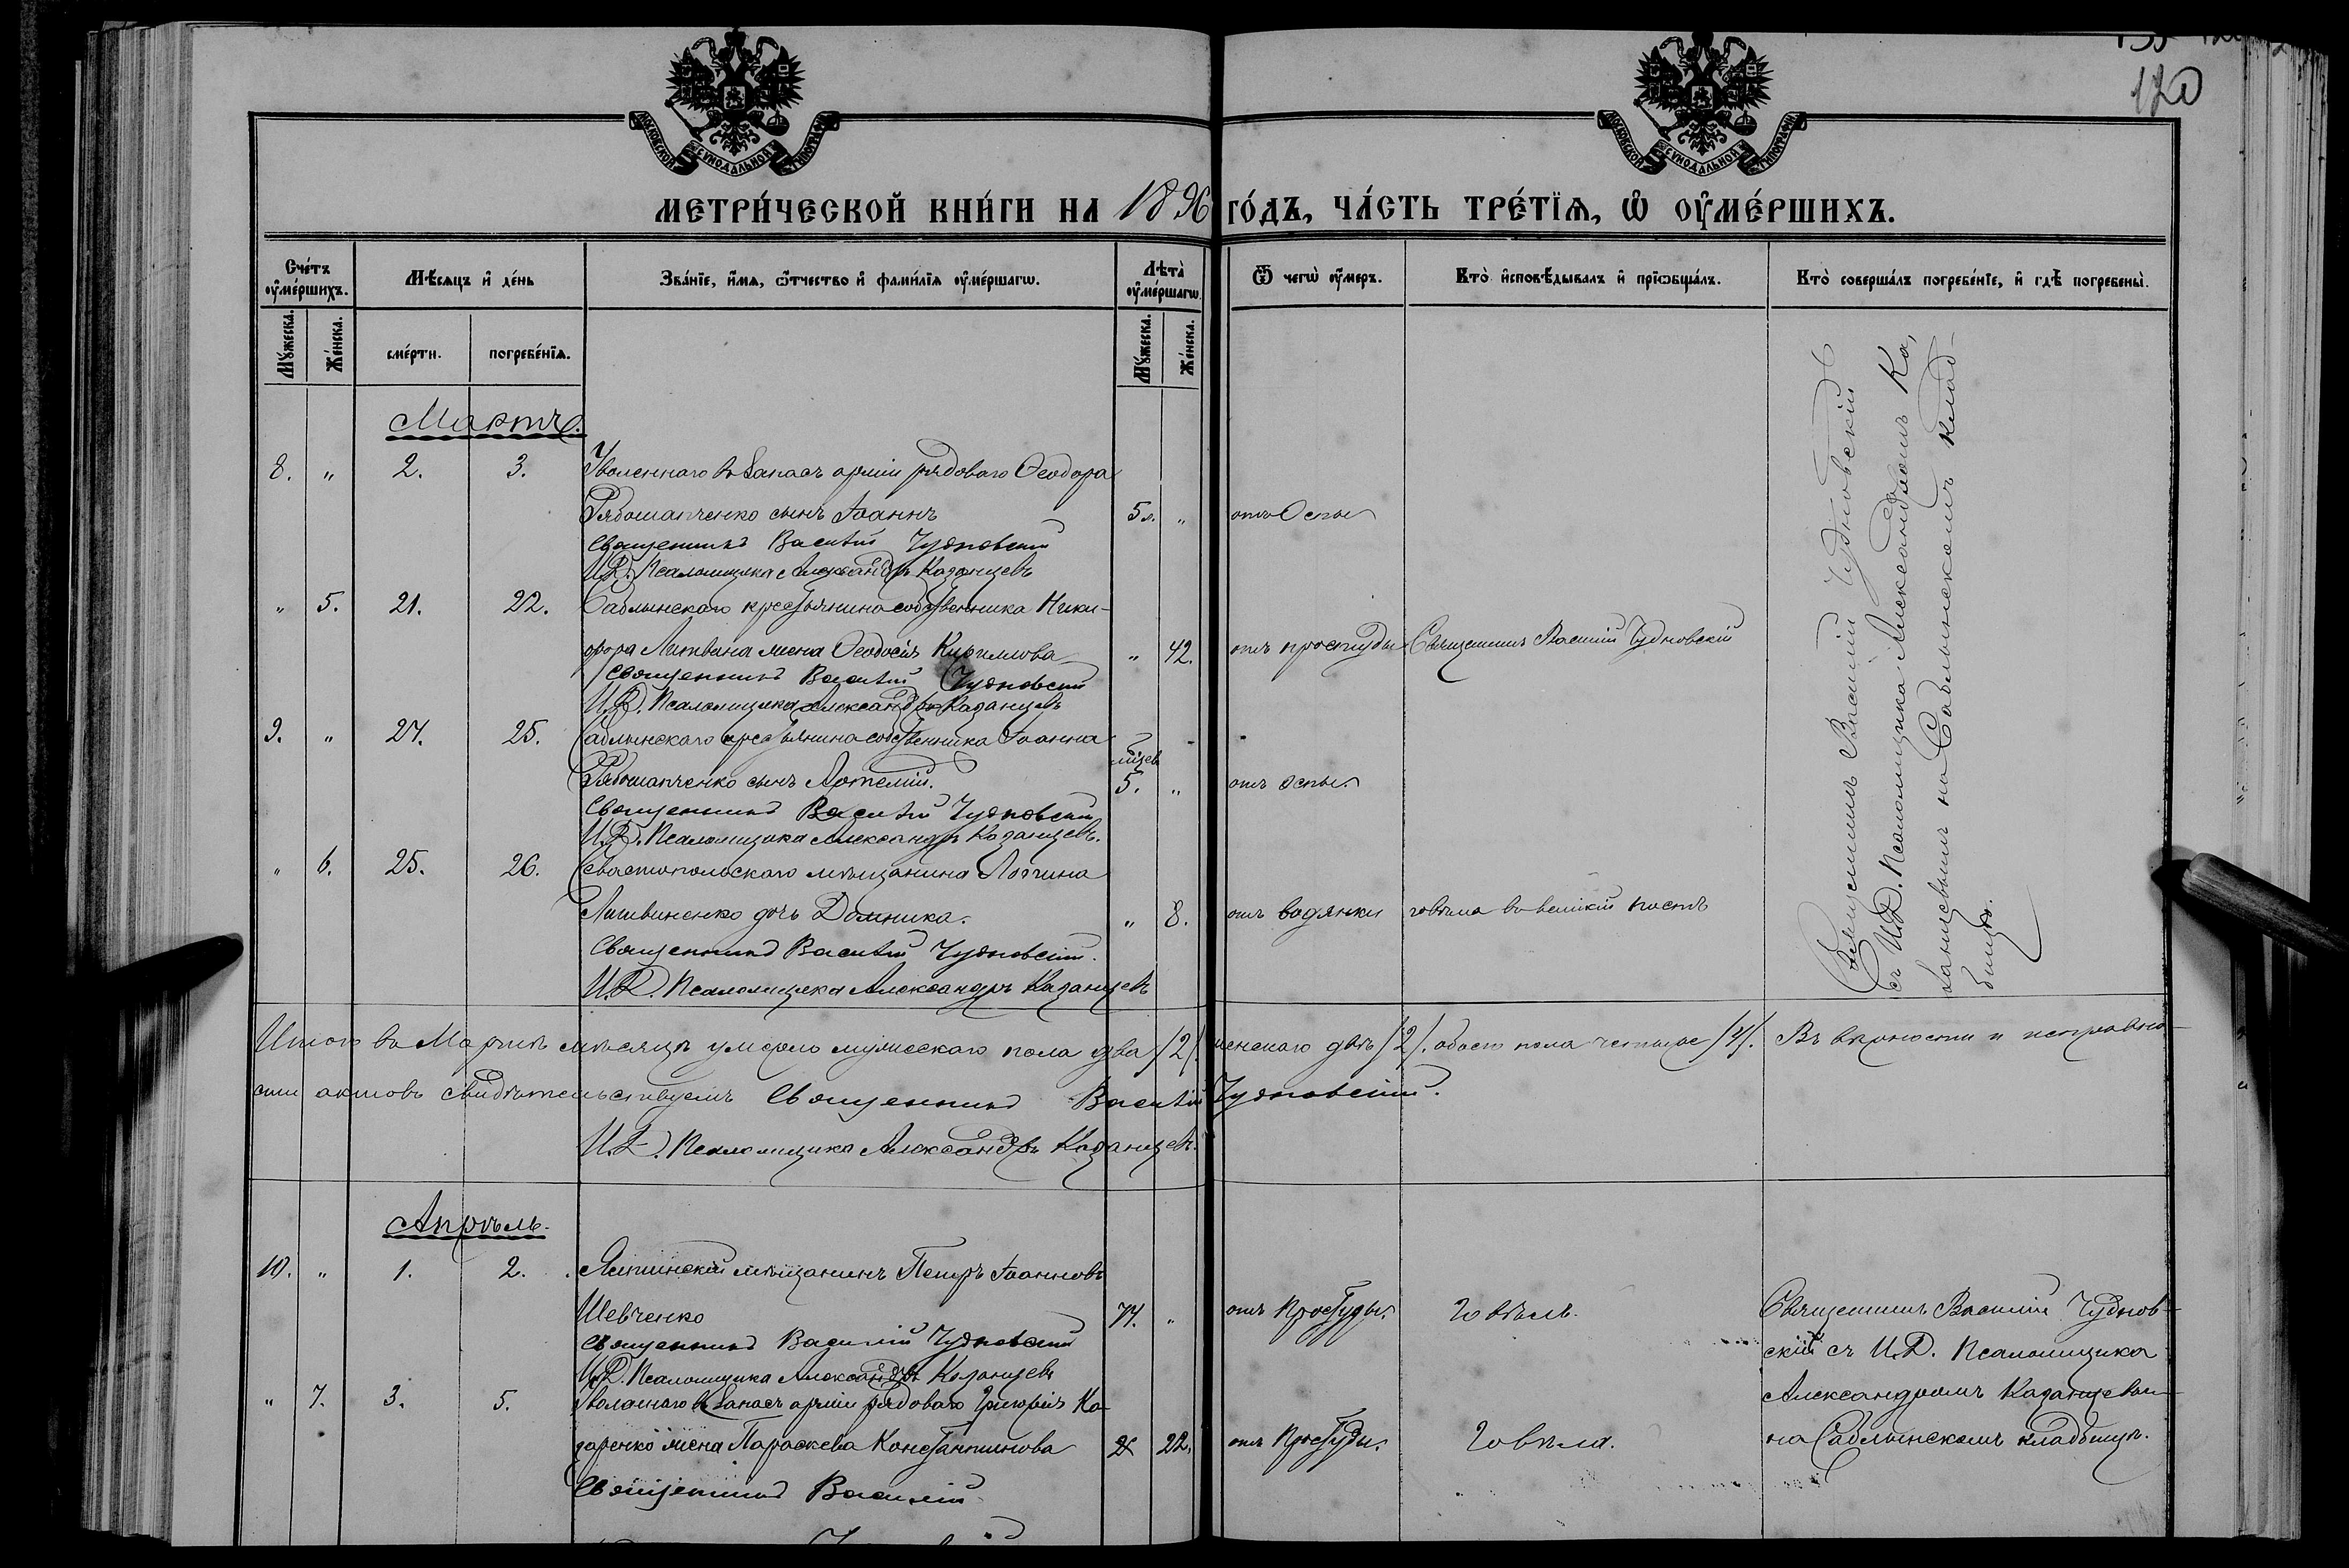 120
МОСКОВСКОЙ СУНОДАЛЬНОЙ ТИПОГРАФІИ
МОСКОВСКОЙ СУНОДАЛЬНОЙ ТИПОГРАФІИ
МЕТРИ́ЧЕСКОЙ КНИ́ГИ НА 1896 ГО́ДЪ, ЧА́СТЬ ТРЕ́ТЇѦ, Ѡ҆ ОУ҆МЕ́РШИХЪ.
Сче́тъ оу҆ме́ршихъ.
Мѣ́сѧцъ и҆ де́нь
Зва́нїе, и҆́мѧ, ѻ҆́тчество и҆ фами́лїѧ оу҆ме́ршагѡ.
Лѣ́та оу҆ме́ршагѡ.
Ѿ чегѡ̀ оу҆́меръ.
Кто̀ и҆сповѣ́дывалъ и҆ прїѡбща́лъ.
Кто̀ соверша́лъ погребе́нїе, и҆ гдѣ̀ погребены̀.
Мꙋ́жеска. Же́нска.
сме́рти. погребе́нїѧ.
Мꙋ́жеска. Же́нска.
Мартъ.
8. „ 2. 3. Уволеннаго въ Запасъ арміи рядоваго Ѳеодора
Рябошапченко сынъ Іоаннъ 5 л. „ отъ Оспы
Священникъ Василій Чудновскій
И.Д. Псаломщика Александръ Казанцевъ
„ 5. 21. 22. Саблынскаго крестьянина собственника Ники-
фора Литвина жена Ѳеодосія Кириллова „ 42. отъ простуды Священникъ Василій Чудновскій
Священникъ Василій Чудновскій
И.Д. Псаломщика Александръ Казанцевъ
9. „ 24. 25. Саблынскаго крестьянина собственника Іоанна
Рябошапченко сынъ Артемій. мѣсев 5. „ отъ оспы.
Священникъ Василій Чудновскій
И.Д. Псаломщика Александръ Казанцевъ.
„ 6. 25. 26. Севастопольскаго мѣщанина Логгина
Литвиненко дочь Домника. „ 8. отъ водянки говѣла въ великій постъ
Священникъ Василій Чудновскій.
И.Д. Псаломщика Александръ Казанцевъ
Священникъ Василій Чудновскій
съ И.Д. Псаломщика Александромъ Ка,
занцевымъ на Саблынскомъ клад-
бищѣ.
Итого въ Мартѣ мѣсяцѣ умерло мужескаго пола два /2/ женскаго двѣ /2/. обоего пола четыре /4/. Въ вѣрности и исправно-
сти актовъ свидѣтельствуемъ Священникъ Василій Чудновскій.
И.Д. Псаломщика Александръ Казанцевъ.
Апрѣль.
10. „ 1. 2. Ялтинскій мѣщанинъ Петръ Іоанновъ
Шевченко 74. „ отъ простуды. говѣлъ. Священникъ Василій Чуднов-
Священникъ Василій Чудновскій
скій съ И.Д. Псаломщика
И.Д. Псаломщика Александръ Казанцевъ
„ 7. 3. 5. Уволеннаго въ Запасъ арміи рядоваго Григорія Ко-
Александромъ Казанцевым
заренко жена Параскева Константинова 22. отъ простуды. говѣла. на Саблынскомъ кладбищѣ.
Священникъ Василій